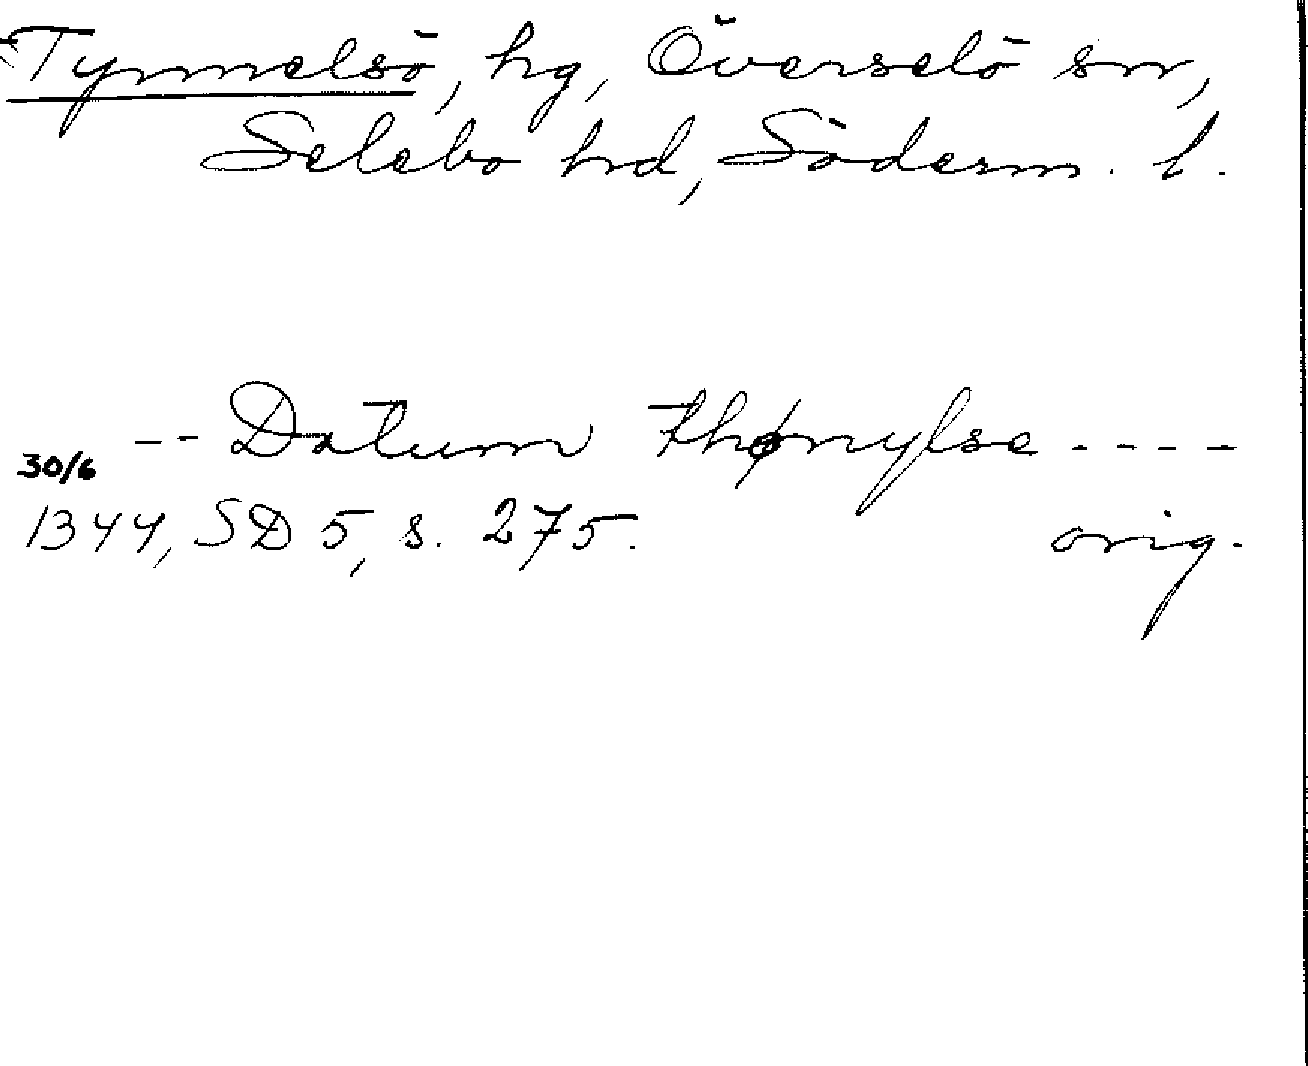 Tynnelsö, hg, Överselö sn,
Selebo hd, Söderm. l.
-- Datum thønylse ----
30/6
1344, SD 5, s. 275. orig.